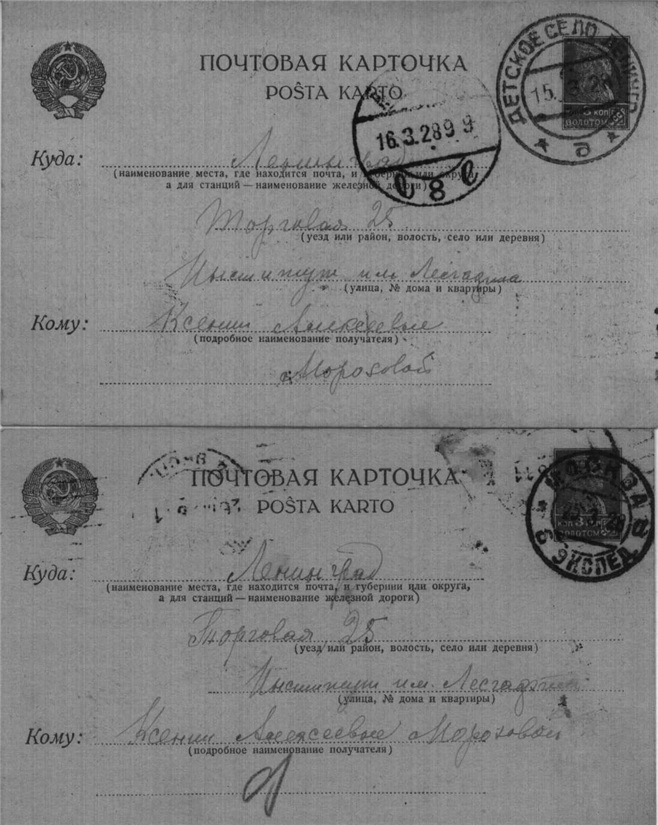 ПОЧТОВАЯ КАРТОЧКА
POŜTA KARTO
ДЕТСКОЕ СЕЛО
15.
а
16.3.28 9
8
КОП
ЗОЛОТОМ
Куда: Ленинград
(наименование места, где находится почта, и губернии или округа,
а для станций — наименование железной дороги)
Торговая 25
(уезд или район, волость, село или деревня)
Институт им. Лесгафта
(улица, № дома и квартиры)
Кому: Ксении Алексеевне
(подробное наименование получателя)
Морозовой
ПОЧТОВАЯ КАРТОЧКА
POŜTA KARTO
МОСКВА
ЭКСПЕД
КОП. 3
ЗОЛОТОМ
Куда: Ленинград
(наименование места, где находится почта, и губернии или округа,
а для станций — наименование железной дороги)
Торговая 25
(уезд или район, волость, село или деревня)
Институт им. Лесгафта
(улица, № дома и квартиры)
Кому: Ксении Алексеевне Морозовой
(подробное наименование получателя)